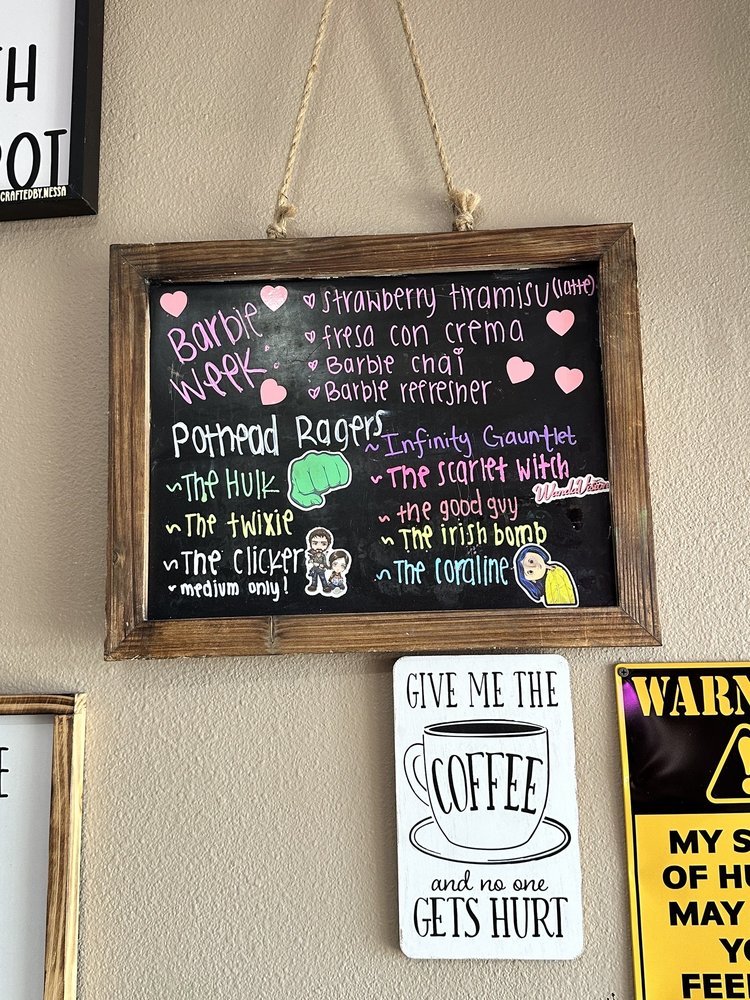 TH
POT
CRAFTEDBY.NESSA
Barbie
Week
strawberry tiramisu (latte)
fresa con crema
Barbie chai
Barbie refresher
Pothead Ragers
~The Hulk
~The twixie
~The clicker
medium only!
~Infinity Gauntlet
~The scarlet witch
WandaVision
~the good guy
~The irish bomb
~The coraline
GIVE ME THE
COFFEE
and no one
GETS HURT
E
WARN
MY S
OF HU
MAY
YO
FEE